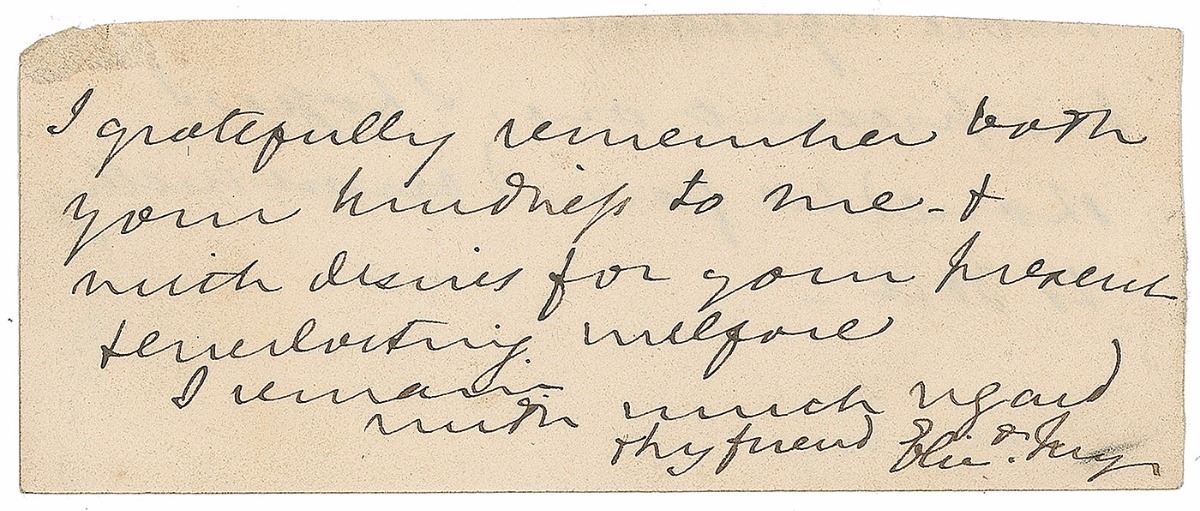 I gratefully remember both
your kindness to me - &
with desires for your present
& everlasting welfare
I remain
with much regard
thy friend Eliz.th Fry